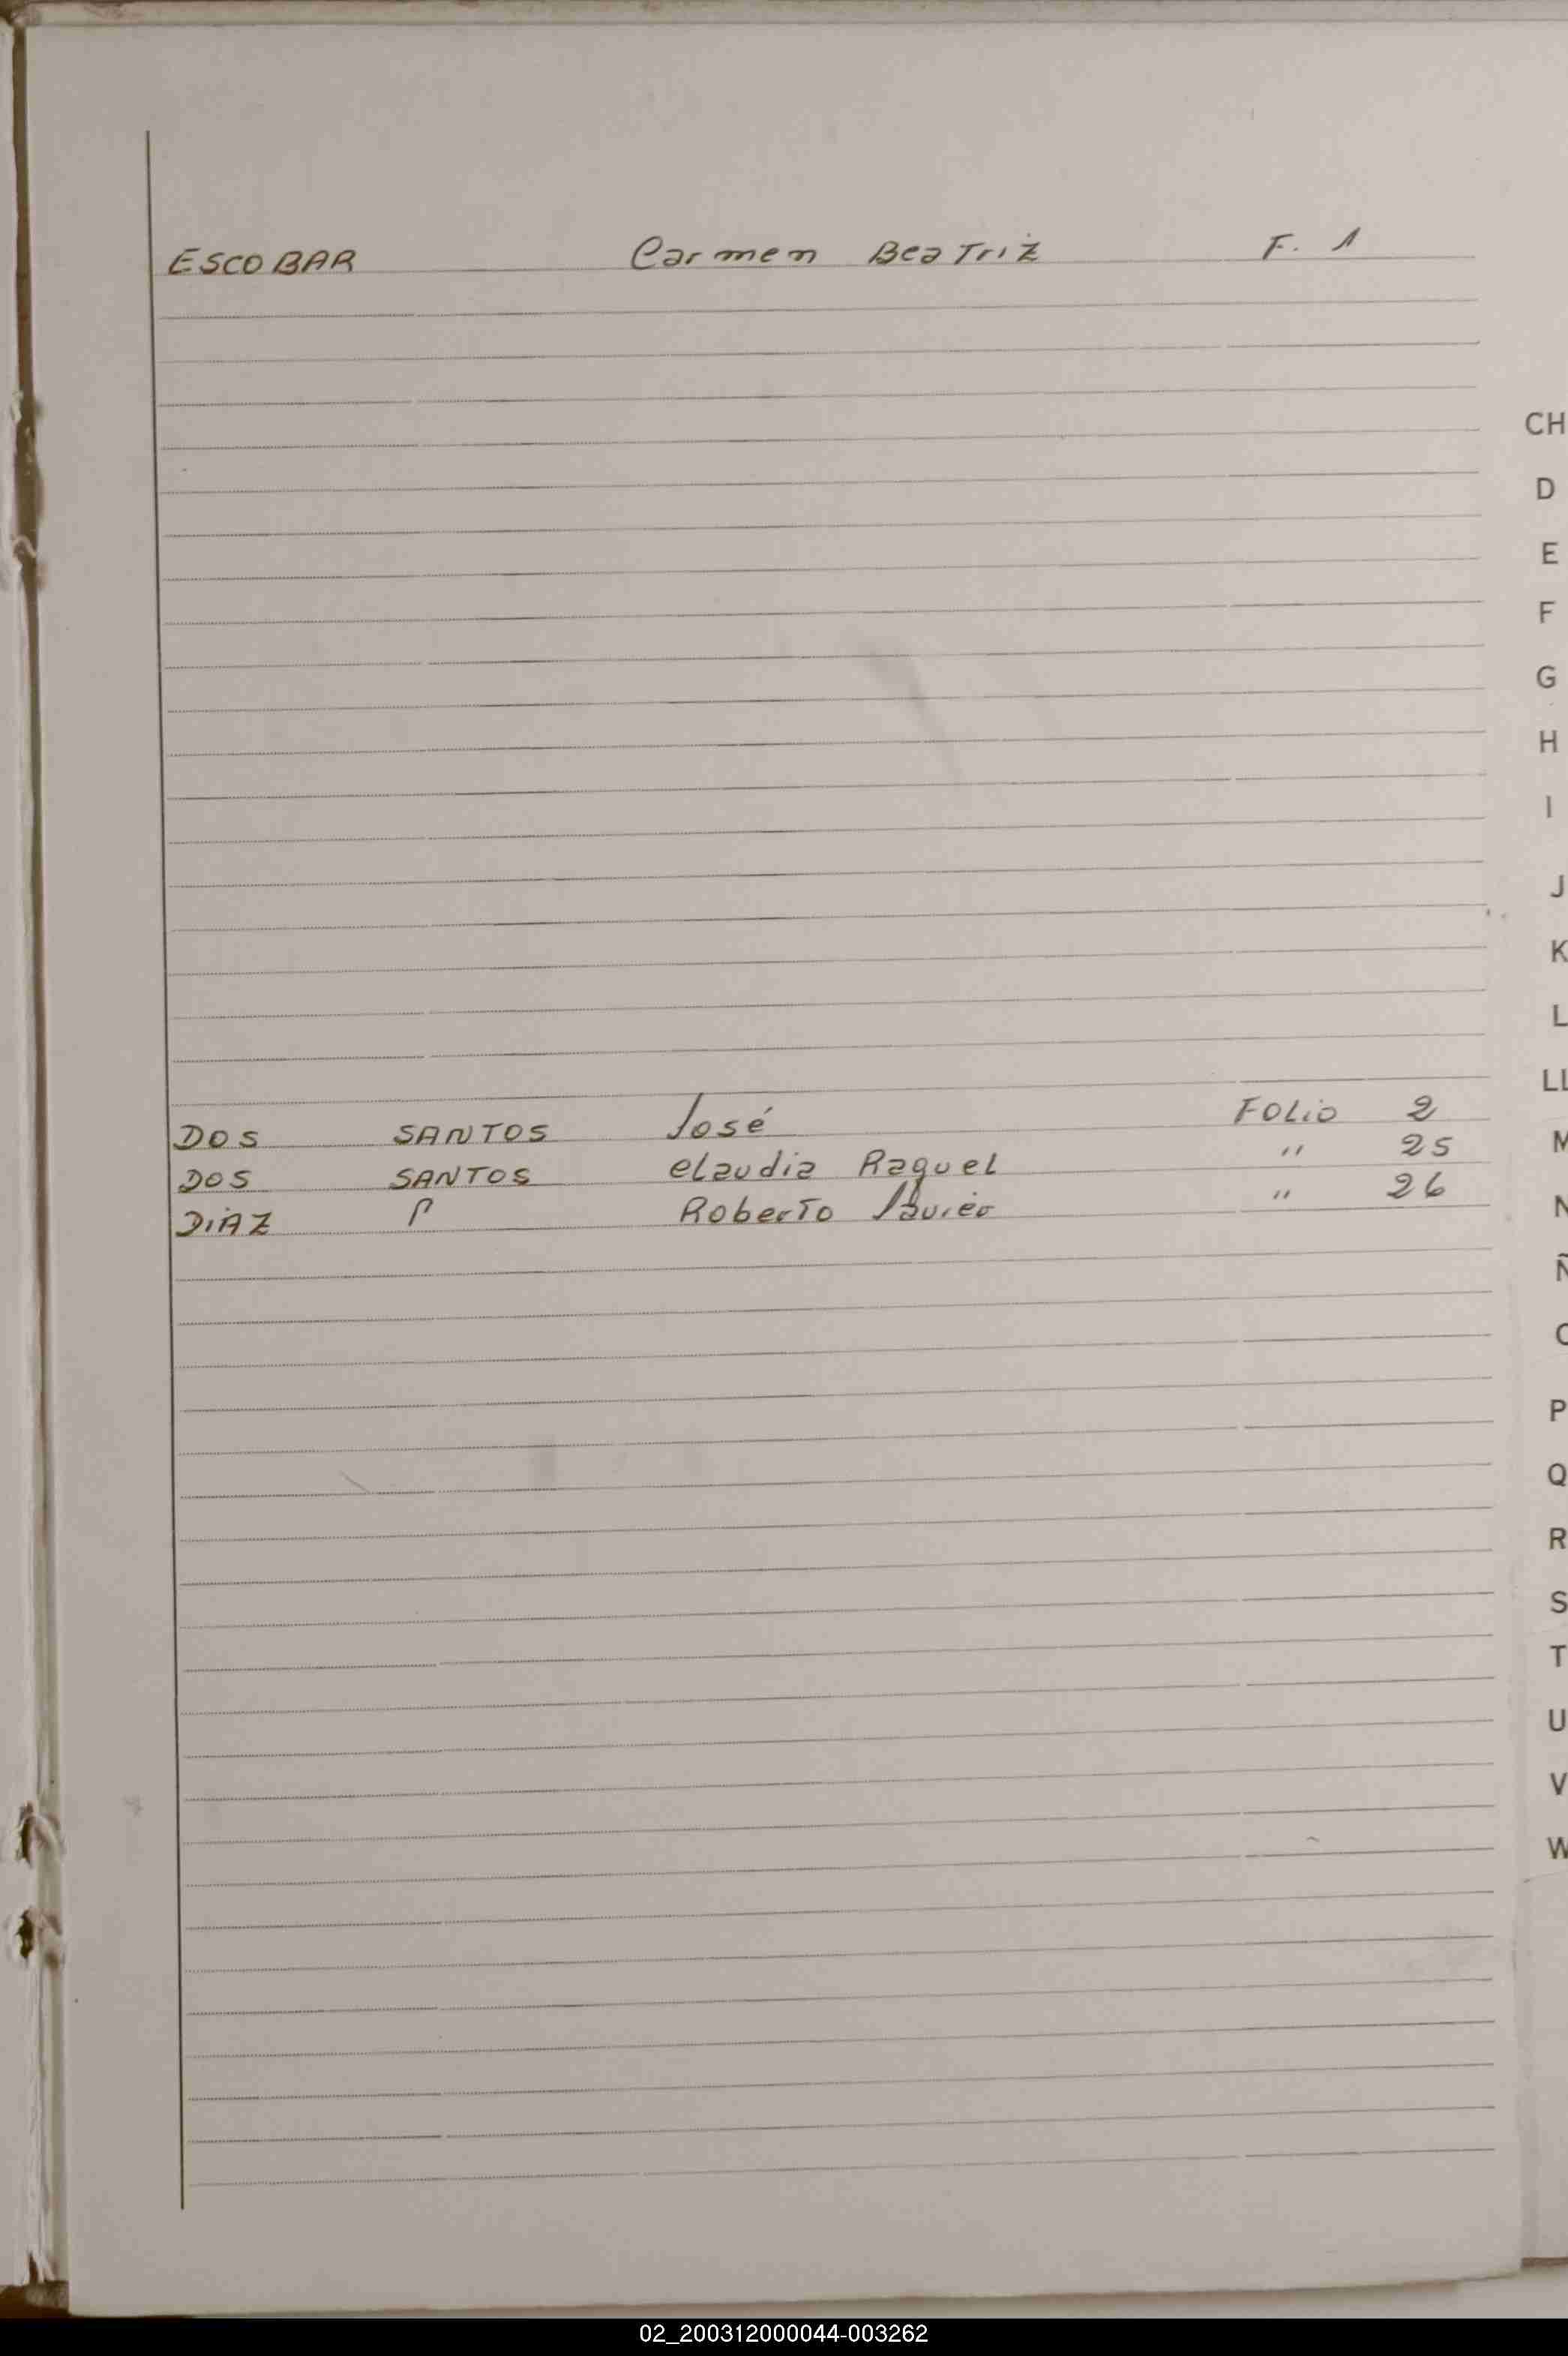 ESCOBAR Carmen Beatriz F. 1
DOS SANTOS José FOLio 2
DOS SANTOS Claudia Raquel " 25
DiAZ P Roberto Javier " 26
CH
D
E
F
G
H
I
J
K
L
LL
M
N
Ñ
O
P
Q
R
S
T
U
V
W
02_200312000044-003262